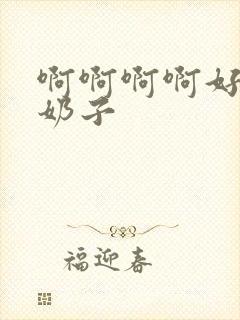 啊啊啊啊好
奶子
福迎春